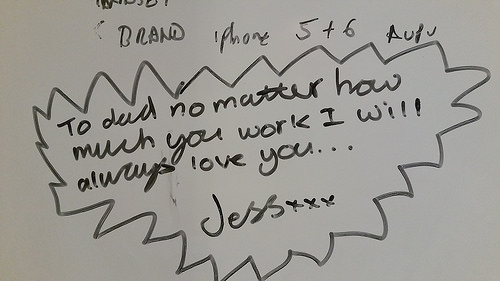 BRAND iphone 5+6
To dad no matter how
much you work I will
always love you...
Jess xxx